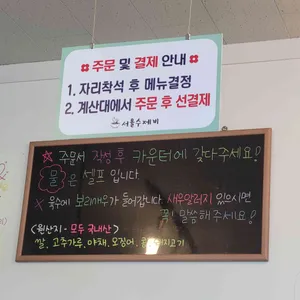 주문 및 결제 안내
1. 자리착석 후 메뉴결정
2. 계산대에서 주문 후 선결제
서울수제비
주문서 작성 후 카운터에 갖다주세요!
물은 셀프 입니다
육수에 보리새우가 들어갑니다 새우알러지 있으시면
꼭! 말씀해주세요!
<원산지 - 모두 국내산>
쌀, 고추가루, 야채, 오징어, 돼지고기